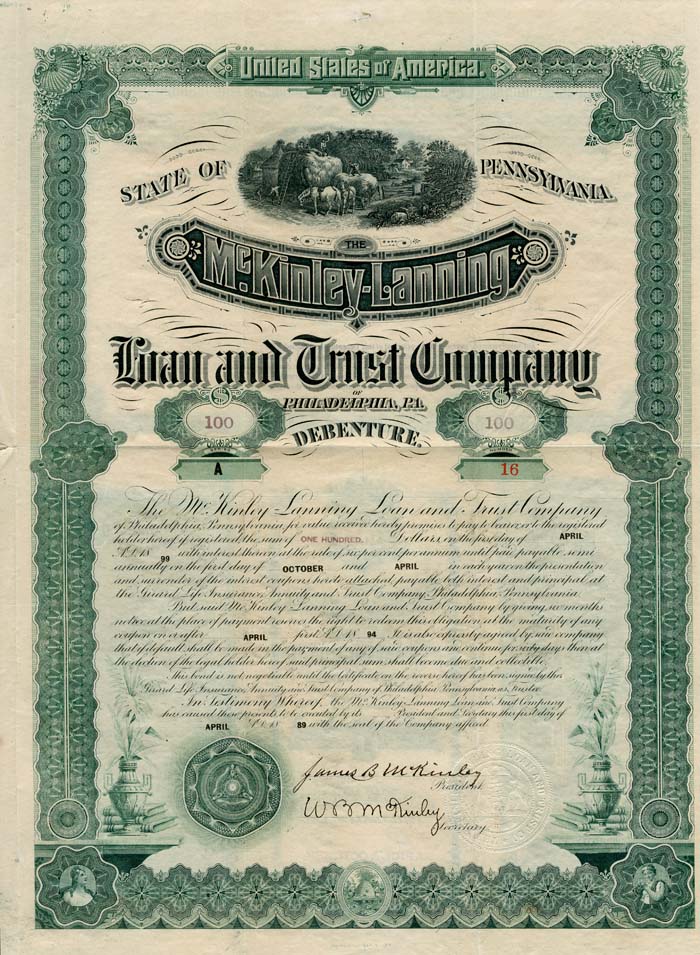 United States of America.
STATE OF PENNSYLVANIA.
THE
McKinley-Lanning
Loan and Trust Company
OF
PHILADELPHIA, PA.
$ 100 $ 100
DEBENTURE.
NUMBER
A 16
The McKinley Lanning Loan and Trust Company
of Philadelphia, Pennsylvania, for value received hereby promises to pay to bearer or to the registered
holder hereof if registered, the sum of ONE HUNDRED. Dollars, on the first day of APRIL
A.D. 18 99 with interest thereon at the rate of six per cent per annum until paid, payable semi
annually on the first day of OCTOBER and APRIL in each year on the presentation
and surrender of the interest coupons hereto attached payable both interest and principal at
the Girard Life Insurance, Annuity and Trust Company, Philadelphia, Pennsylvania.
But said McKinley Lanning Loan and Trust Company by giving six months
notice at the place of payment reserves the right to redeem this obligation at the maturity of any
coupon on or after APRIL first A.D. 18 94 It is also expressly agreed by said company
that if default shall be made in the payment of any of said coupons and continue for sixty days then at
the election of the legal holder hereof said principal sum shall become due and collectible.
This bond is not negotiable until the certificate on the reverse hereof has been signed by the
Girard Life Insurance, Annuity and Trust Company of Philadelphia Pennsylvania as Trustee.
In Testimony Whereof, the McKinley-Lanning Loan and Trust Company
has caused these presents to be executed by its President and Secretary this first day of
APRIL A.D. 18 89 with the seal of the Company affixed.
James B McKinley
President
W B McKinley
Secretary